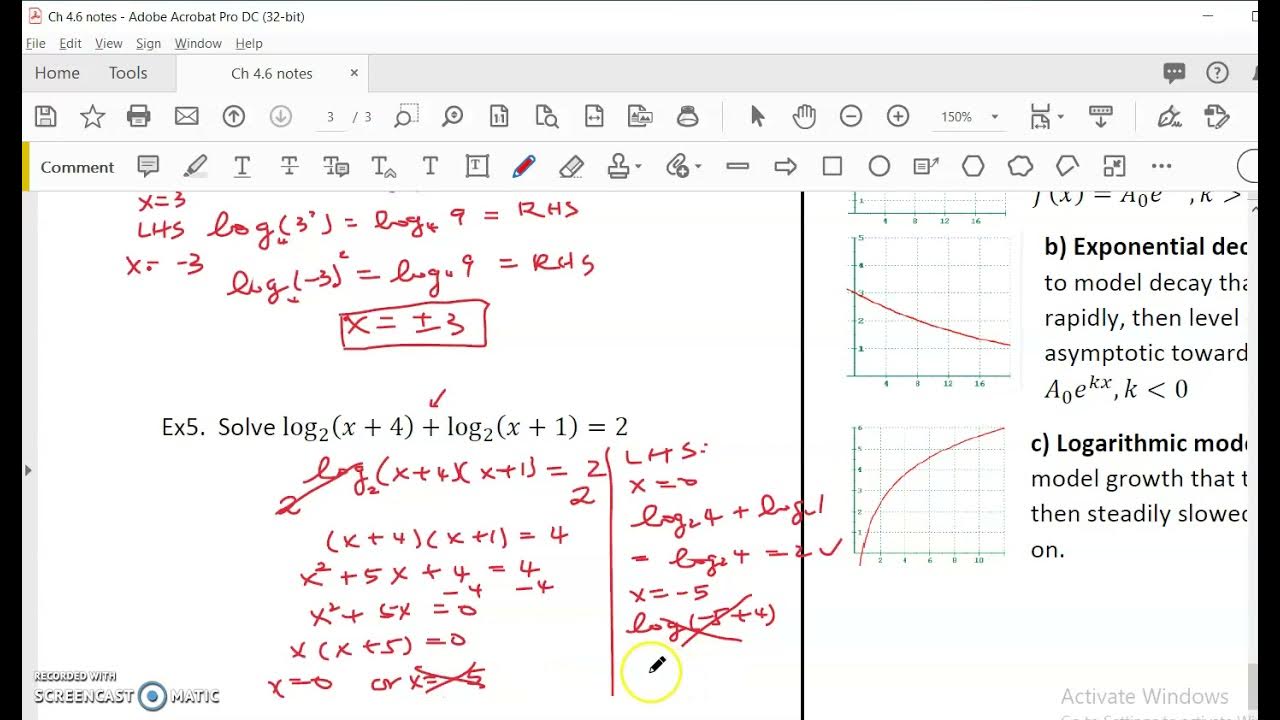 Ch 4.6 notes - Adobe Acrobat Pro DC (32-bit)
File Edit View Sign Window Help
Home Tools Ch 4.6 notes ×
3 / 3 150%
Comment
x=3
LHS log₄(3²) = log₄ 9 = RHS
x=-3 log₄(-3)² = log₄ 9 = RHS
x = ±3
Ex5. Solve log₂(x + 4) + log₂(x + 1) = 2
log₂(x+4)(x+1) = 2
2 2
(x+4)(x+1) = 4
x² + 5x + 4 = 4
-4 -4
x² + 5x = 0
x(x+5) = 0
x=0 or x=-5
LHS:
x=0
log₂4 + log₂1
= log₂4 = 2 ✓
x=-5
log(-5+4)
f(x) = A₀e , k >
5
4
3
2
1
4 8 12 16
b) Exponential dec
to model decay tha
rapidly, then level
asymptotic toward
A₀eᵏˣ, k < 0
6
5
4
3
2
1
2 4 6 8 10
c) Logarithmic mode
model growth that t
then steadily slowed
on.
RECORDED WITH
SCREENCAST MATIC
Activate Windows